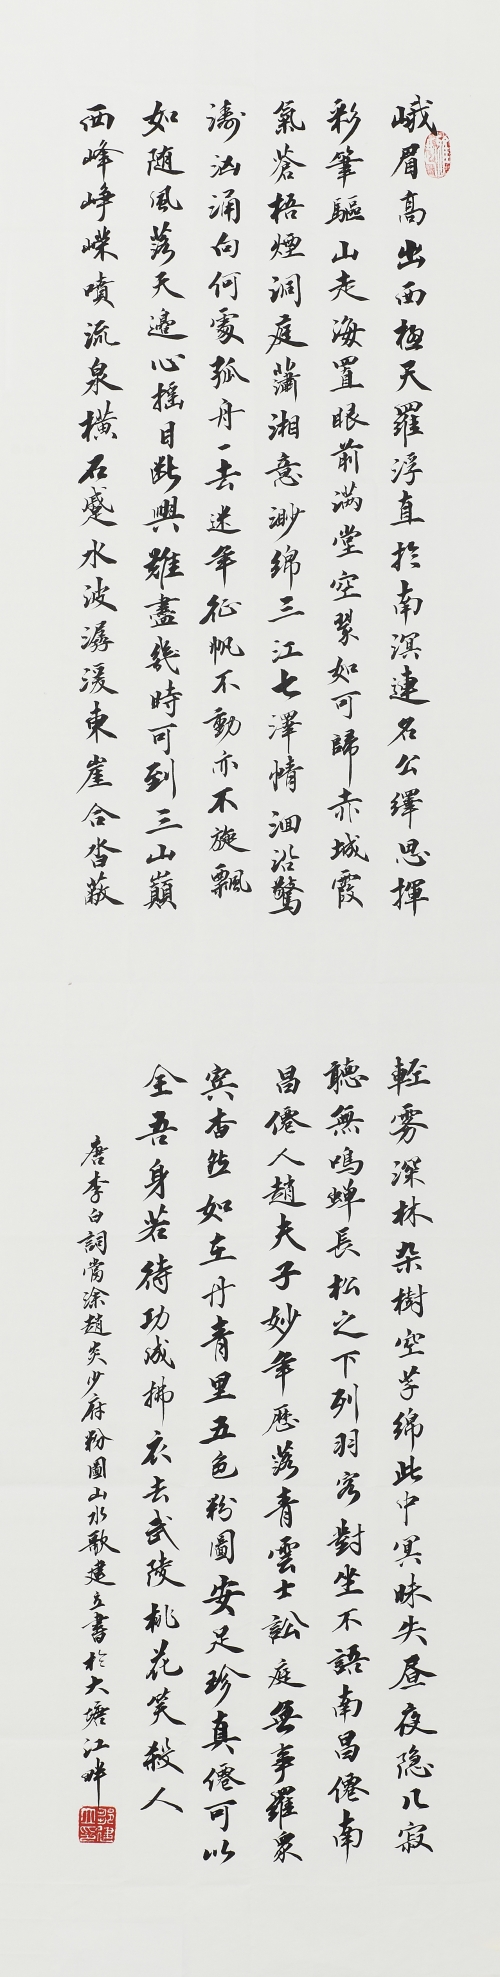 峨眉高出西極天羅浮直於南溟連名公繹思揮
彩筆驅山走海置眼前滿堂空翠如可歸赤城霞
氣蒼梧煙洞庭瀟湘意渺綿三江七澤情洄沿驚
濤洶涌向何處孤舟一去迷年征帆不動亦不旋飄
如随風落天邊心搖目斷興難盡幾時可到三山巔
西峰崢嶸噴流泉橫石蹙水波潺湲東崖合沓蔽
輕霧深林雜樹空芊綿此中冥昧失昼夜隐几寂
聽無鳴蟬長松之下列羽客對坐不語南昌僊南
昌僊人趙夫子妙年歷落青雲士訟庭無事羅眾
賓杳然如在丹青里五色粉圖安足珍真僊可以
全吾身若待功成拂衣去武陵桃花笑殺人
唐李白詞當涂趙炎少府粉圖山水歌建立書於大塘江畔